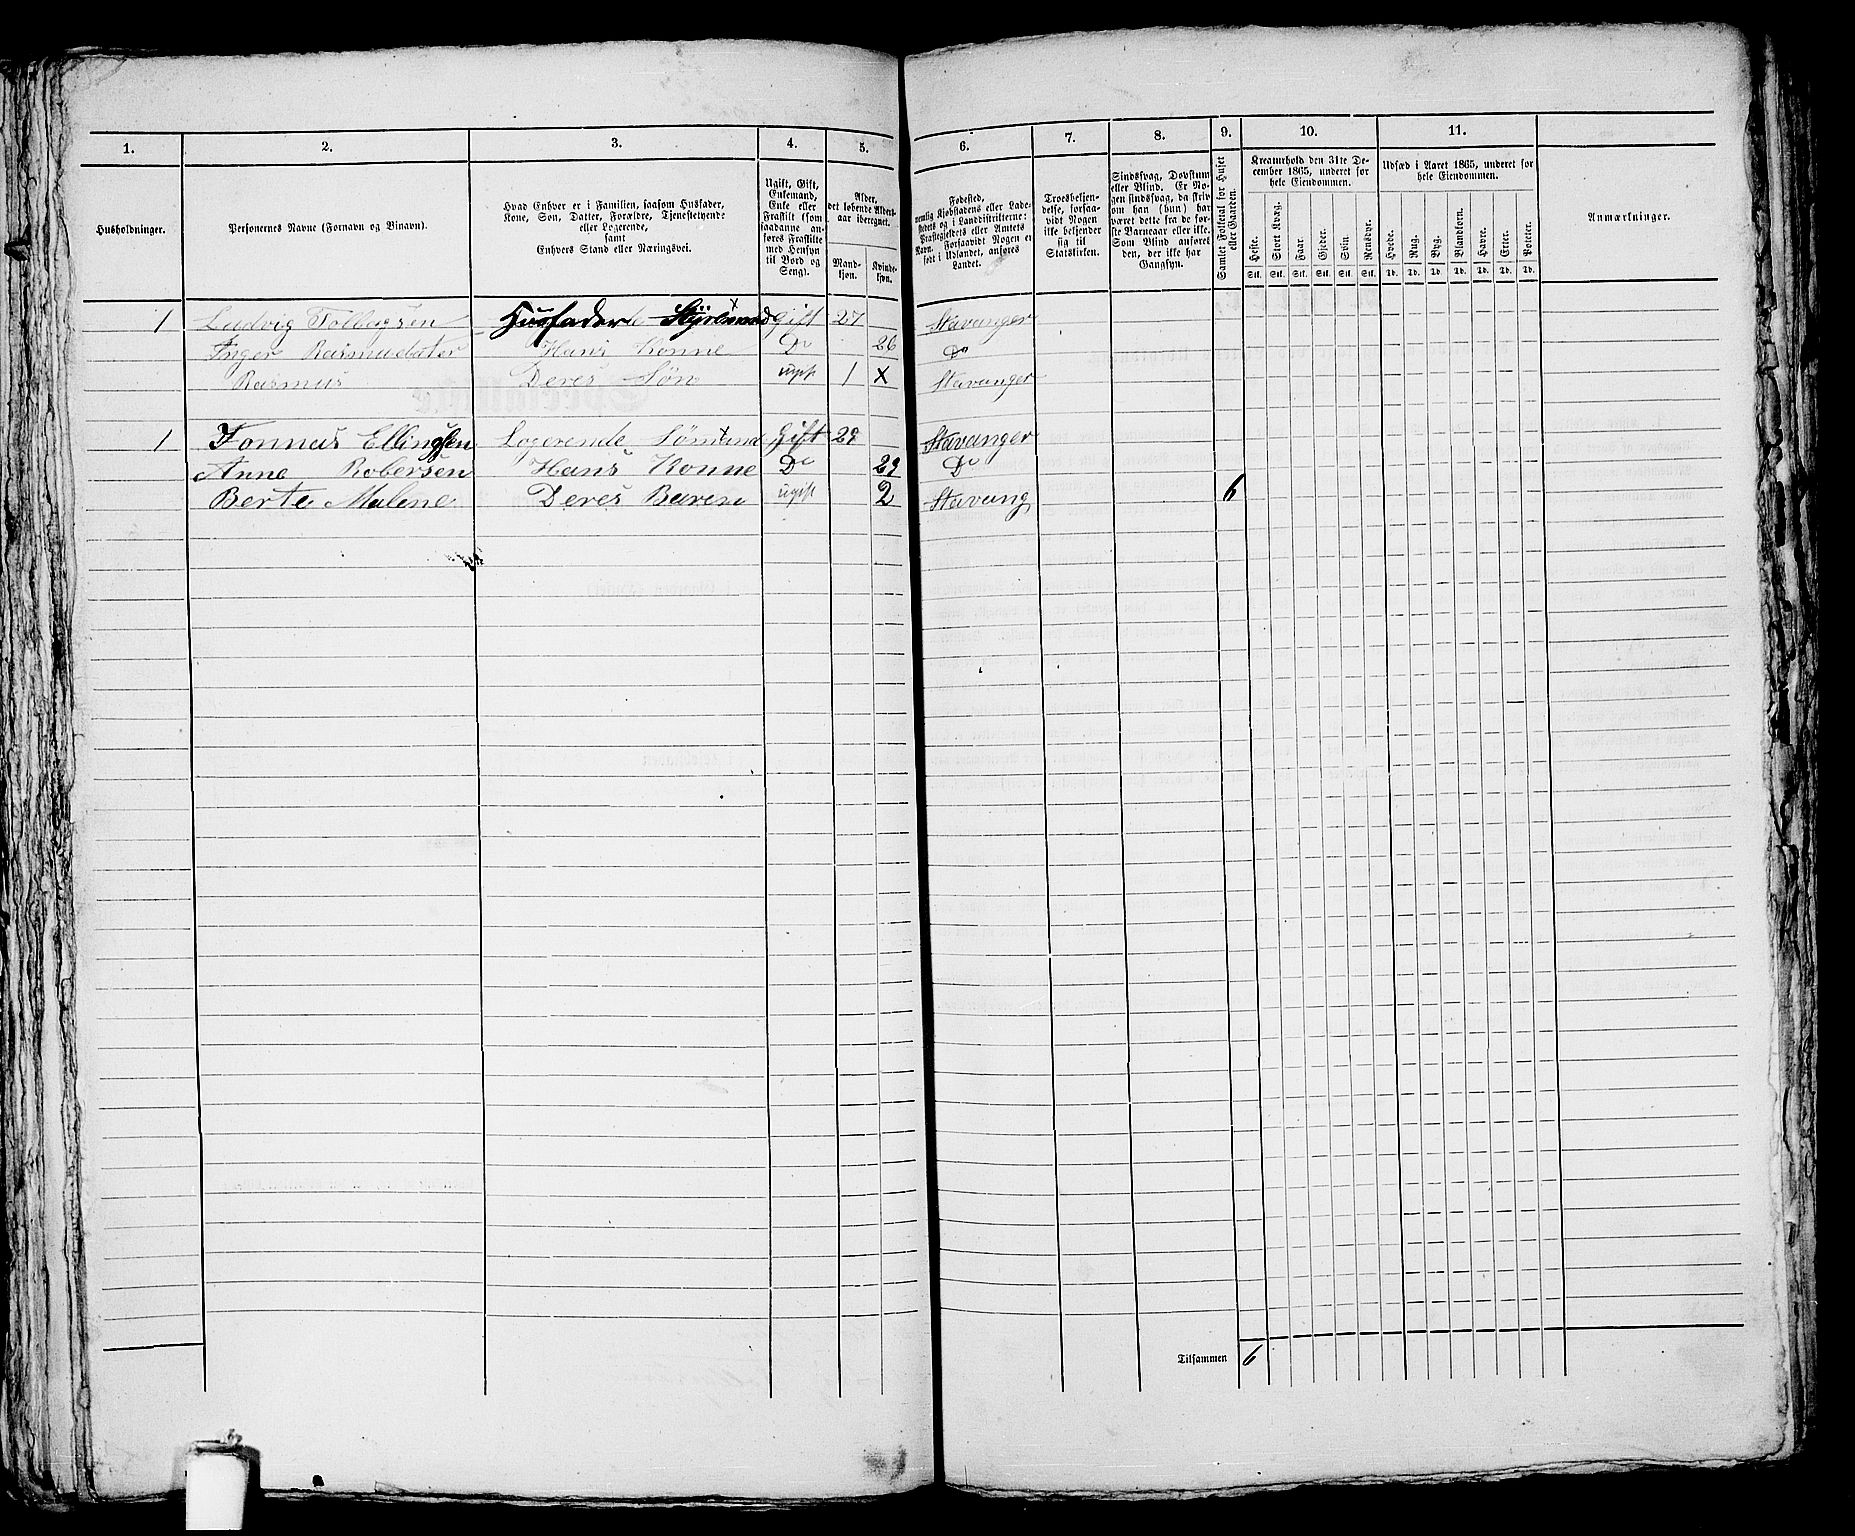 1. 2. 3. 4. 5. 6. 7. 8. 9. 10. 11.
Husholdninger.
Personernes Navne (Fornavn og Binavn).
Hvad Enhver er i Familien, saasom Husfader,
Kone, Søn, Datter, Forældre, Tjenestetyende
eller Logerende,
samt
Enhvers Stand eller Næringsvei.
Ugift, Gift,
Enkemand,
Enke eller
Fraskilt (som
saadanne an-
føres Fraskilte
med Hensyn
til Bord og
Seng).
Alder,
det løbende Alders-
aar iberegnet.
Mand-
kjøn.
Kvinde-
kjøn.
Fødested,
nemlig Kjøbstadens eller Lade-
stedets og i Landdistrikterne:
Præstegjeldets eller Amtets
Navn. Forsaavidt Nogen er
født i Udlandet, anføres
Landet.
Troesbekjen-
delse, forsaa-
vidt Nogen
ikke bekjender
sig til
Statskirken.
Sindssvag, Døvstum
eller Blind. Er No-
gen sindssvag, da skri-
vom han (hun) har
været dette fra de før-
ste Barneaar eller ikke.
Som Blind anføres
den, der ikke har
Gangsyn.
Samlet Folketal for Huset
eller Gaarden.
Kreaturhold den 31te De-
cember 1865, underet for
hele Eiendommen.
Heste. Stort Kvæg. Faar. Gjeder. Svin. Rensdyr.
Stk. Stk. Stk. Stk. Stk. Stk.
Udsæd i Aaret 1865, underet for
hele Eiendommen.
Hvede. Rug. Byg. Blandkorn. Havre. Erter. Poteter.
Td. Td. Td. Td. Td. Td. Td.
Anmærkninger.
1 Ludvig Tolbagsen Husfader Styrsmand Gift 27 Stavanger
Inger Rasmusdater Hans Konne Do 26 Do
Rasmus Deres Søn ugift 1 X Stavanger
1 Tonnas Ellingsen Logerende Sømand Gift 29 Stavanger
Anne Robersen Hans Konne Do 29 Do
Berte Malene Deres Baren ugift 2 Stavang 6
Tilsammen 6